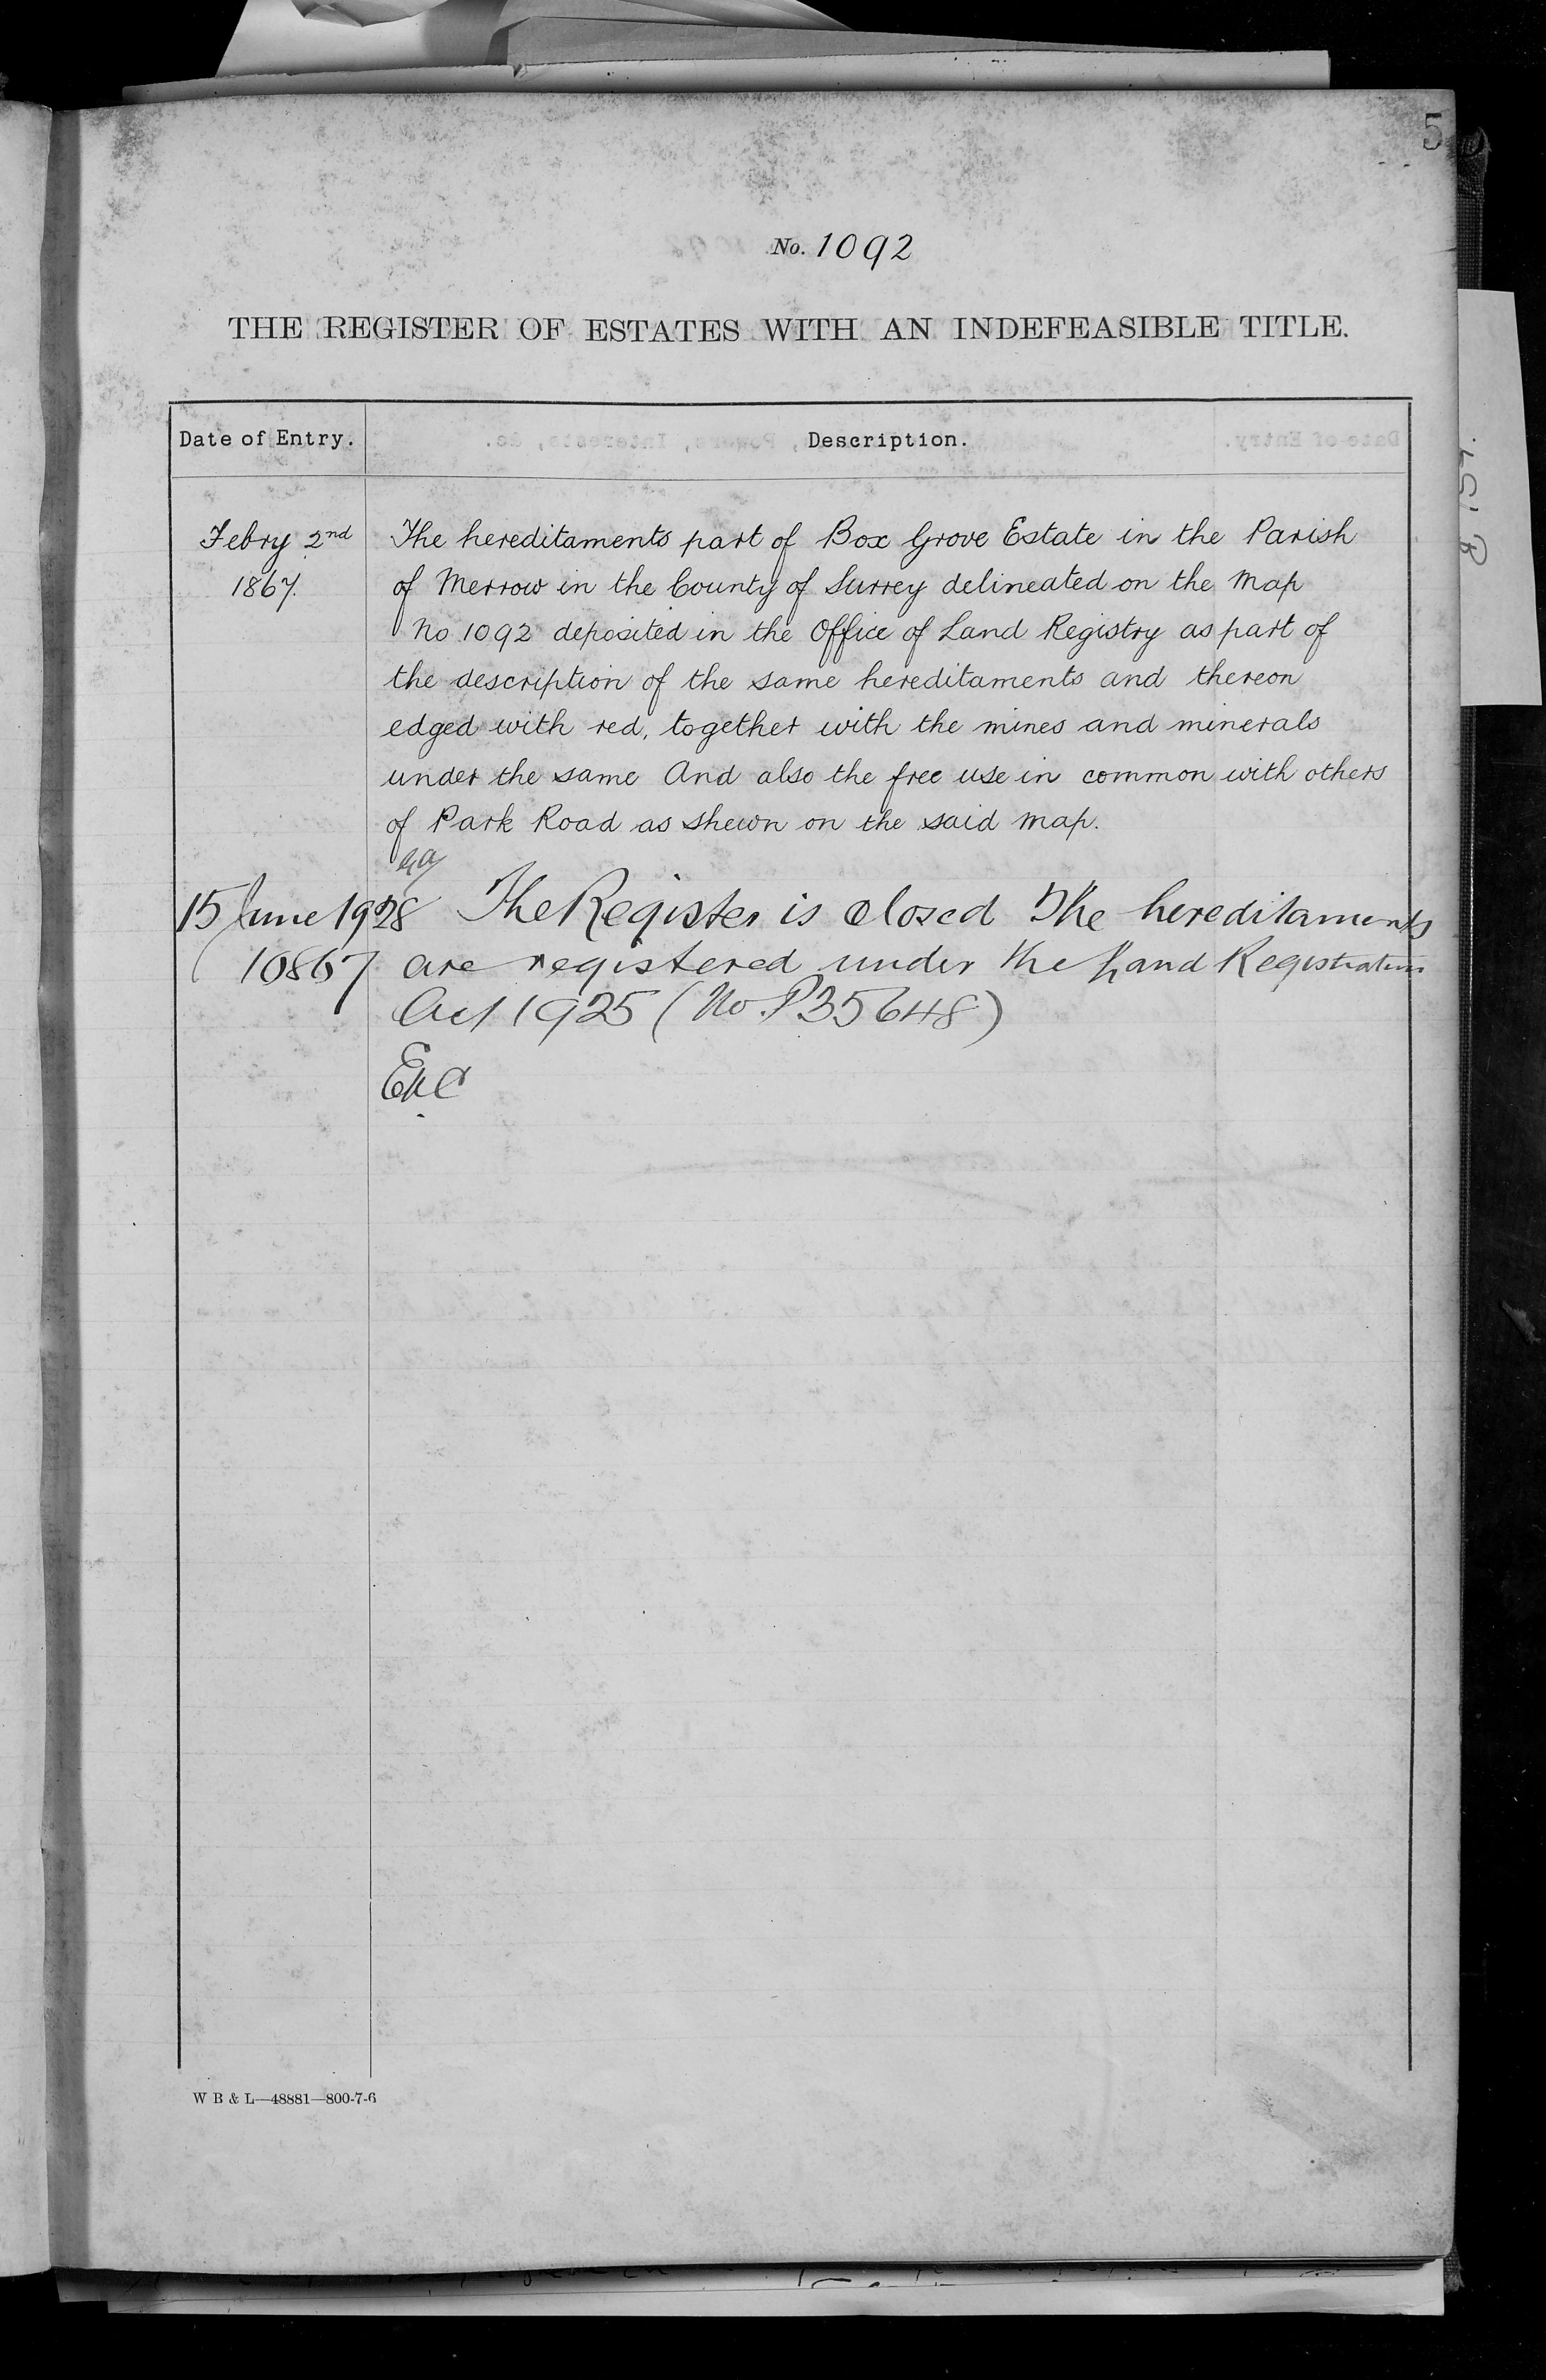 5
No. 1092
THE REGISTER OF ESTATES WITH AN INDEFEASIBLE TITLE.
Date of Entry. Description.
Febry 2nd The hereditaments part of Box Grove Estate in the Parish
1867. of Merrow in the County of Surrey delineated on the Map
No 1092 deposited in the Office of Land Registry as part of
the description of the same hereditaments and thereon
edged with red, together with the mines and minerals
under the same And also the free use in common with others
of Park Road as shewn on the said Map.
15 June 1928 The Register is closed The hereditaments
10867 are registered under the Land Registration
Act 1925 (No. P35648)
W B & L—48881—800-7-6